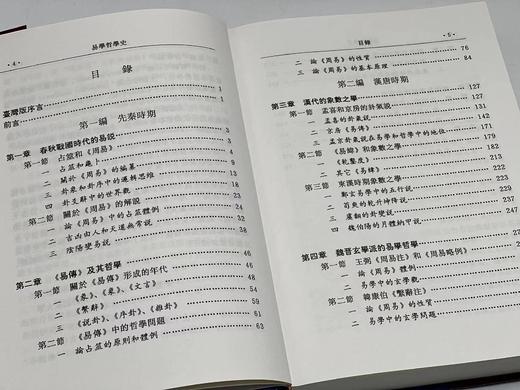 ·4·
易學哲學史
目錄
臺灣版序言
前言
第一編 先秦時期
第一章 春秋戰國時代的易說 3
第一節 占筮和《周易》 3
一 占筮和龜卜 3
二 關於《周易》的編纂
三 卦象和卦序中的邏輯思維
四 卦爻辭中的世界觀
第二節 關於《周易》的解說
一 論《周易》中的占筮體例
二 吉凶由人和天道無常說
三 陰陽變易說
第二章 《易傳》及其哲學 46
第一節 關於《易傳》形成的年代 46
一 《彖》、《象》、《文言》
二 《繫辭》 54
三 《說卦》、《序卦》、《雜卦》 59
第二節 《易傳》中的哲學問題 61
一 論占筮的原則和體例 63
目錄
·5·
二 論《周易》的性質 76
三 論《周易》的基本原理 84
第二編 漢唐時期
第三章 漢代的象數之學 127
第一節 孟喜和京房的卦氣說 127
一 孟喜的卦氣說
二 京房《易傳》
三 孟京卦氣說在易學和哲學中的地位
第二節 《易緯》和象數之學
一 《乾鑿度》
二 其它《易緯》
第三節 東漢時期象數之學
一 鄭玄易學中的五行說
二 荀爽的乾升坤降說
三 虞翻的卦變說 222
四 魏伯陽的月體納甲說 229
第四章 魏晉玄學派的易學哲學
第一節 王弼《周易注》和《周易略例》
一 論《周易》體例
二 易學中的玄學觀
第二節 韓康伯《繫辭注》
一 論《周易》的性質
二 易學中的玄學問題